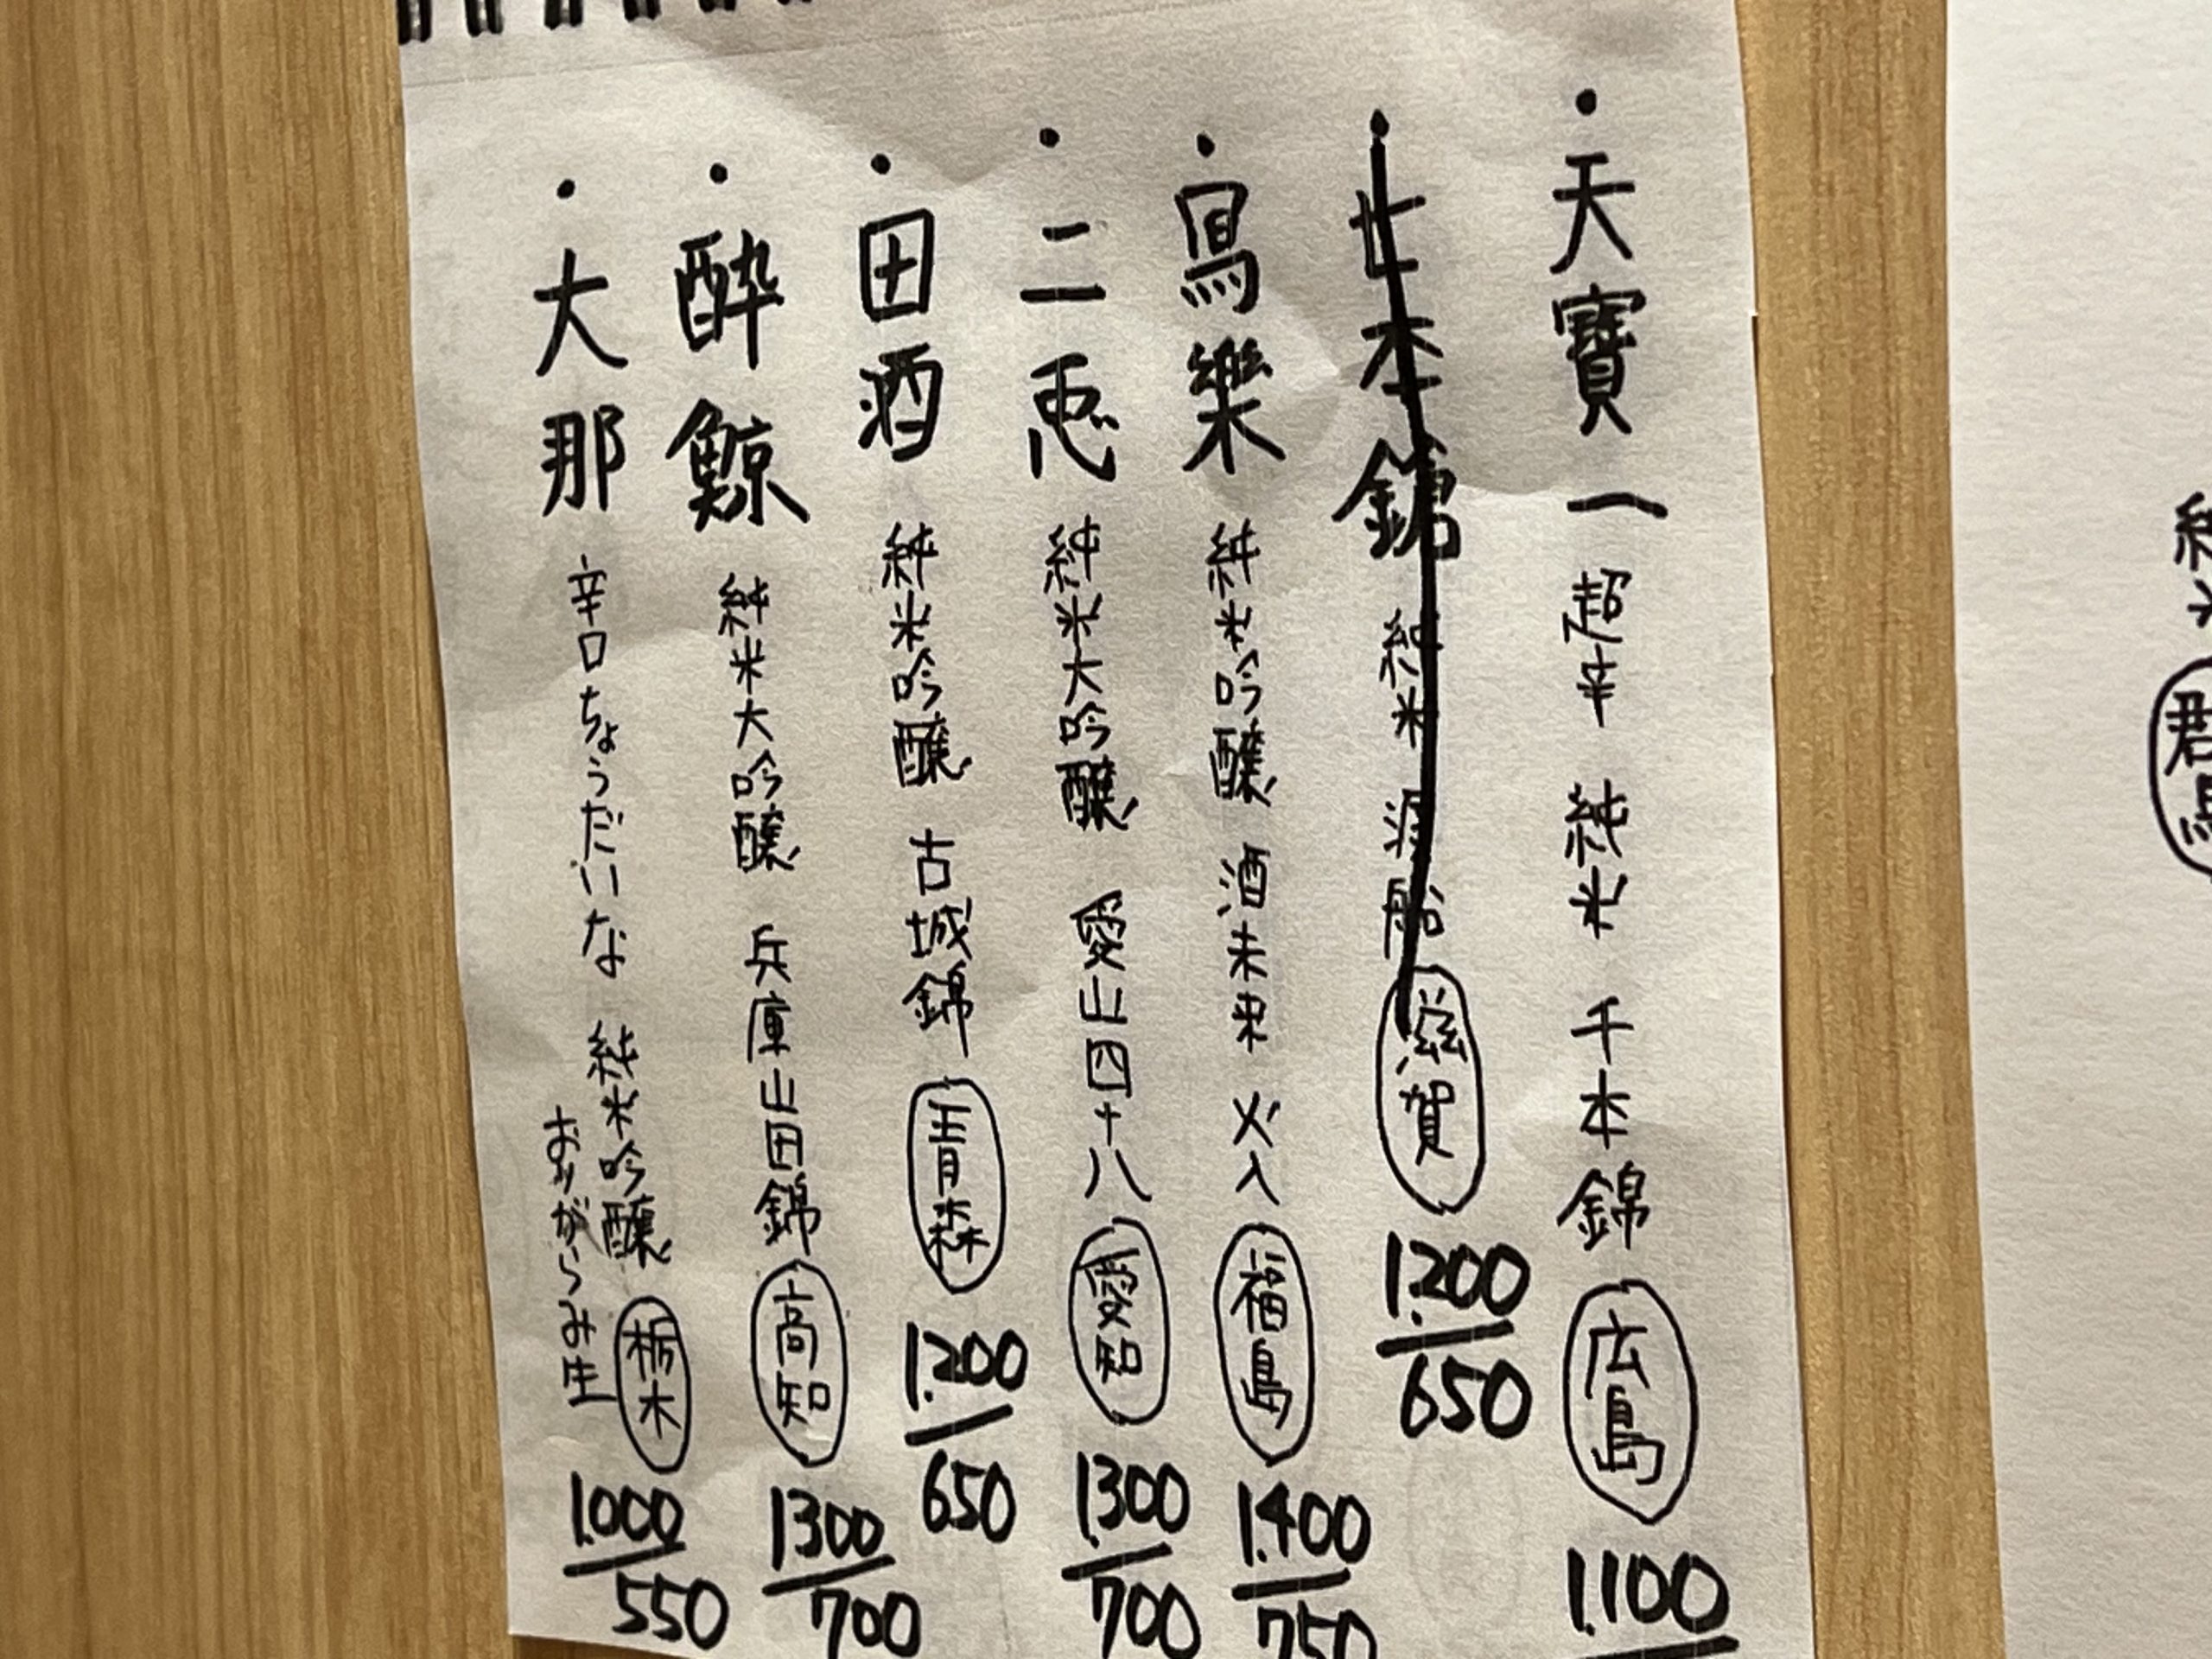 ・天寶一 超辛 純米 千本錦 広島 1.100
・七本鎗 純米 滋賀 1.200/650
・寫樂 純米吟醸 酒未来 火入 福島 1.400/750
・二兎 純米大吟醸 愛山四十八 愛知 1.300/700
・田酒 純米吟醸 古城錦 青森 1.200/650
・酔鯨 純米大吟醸 兵庫山田錦 高知 1300/700
・大那 辛口ちょうだいな 純米吟醸 おりがらみ生 栃木 1.000/550